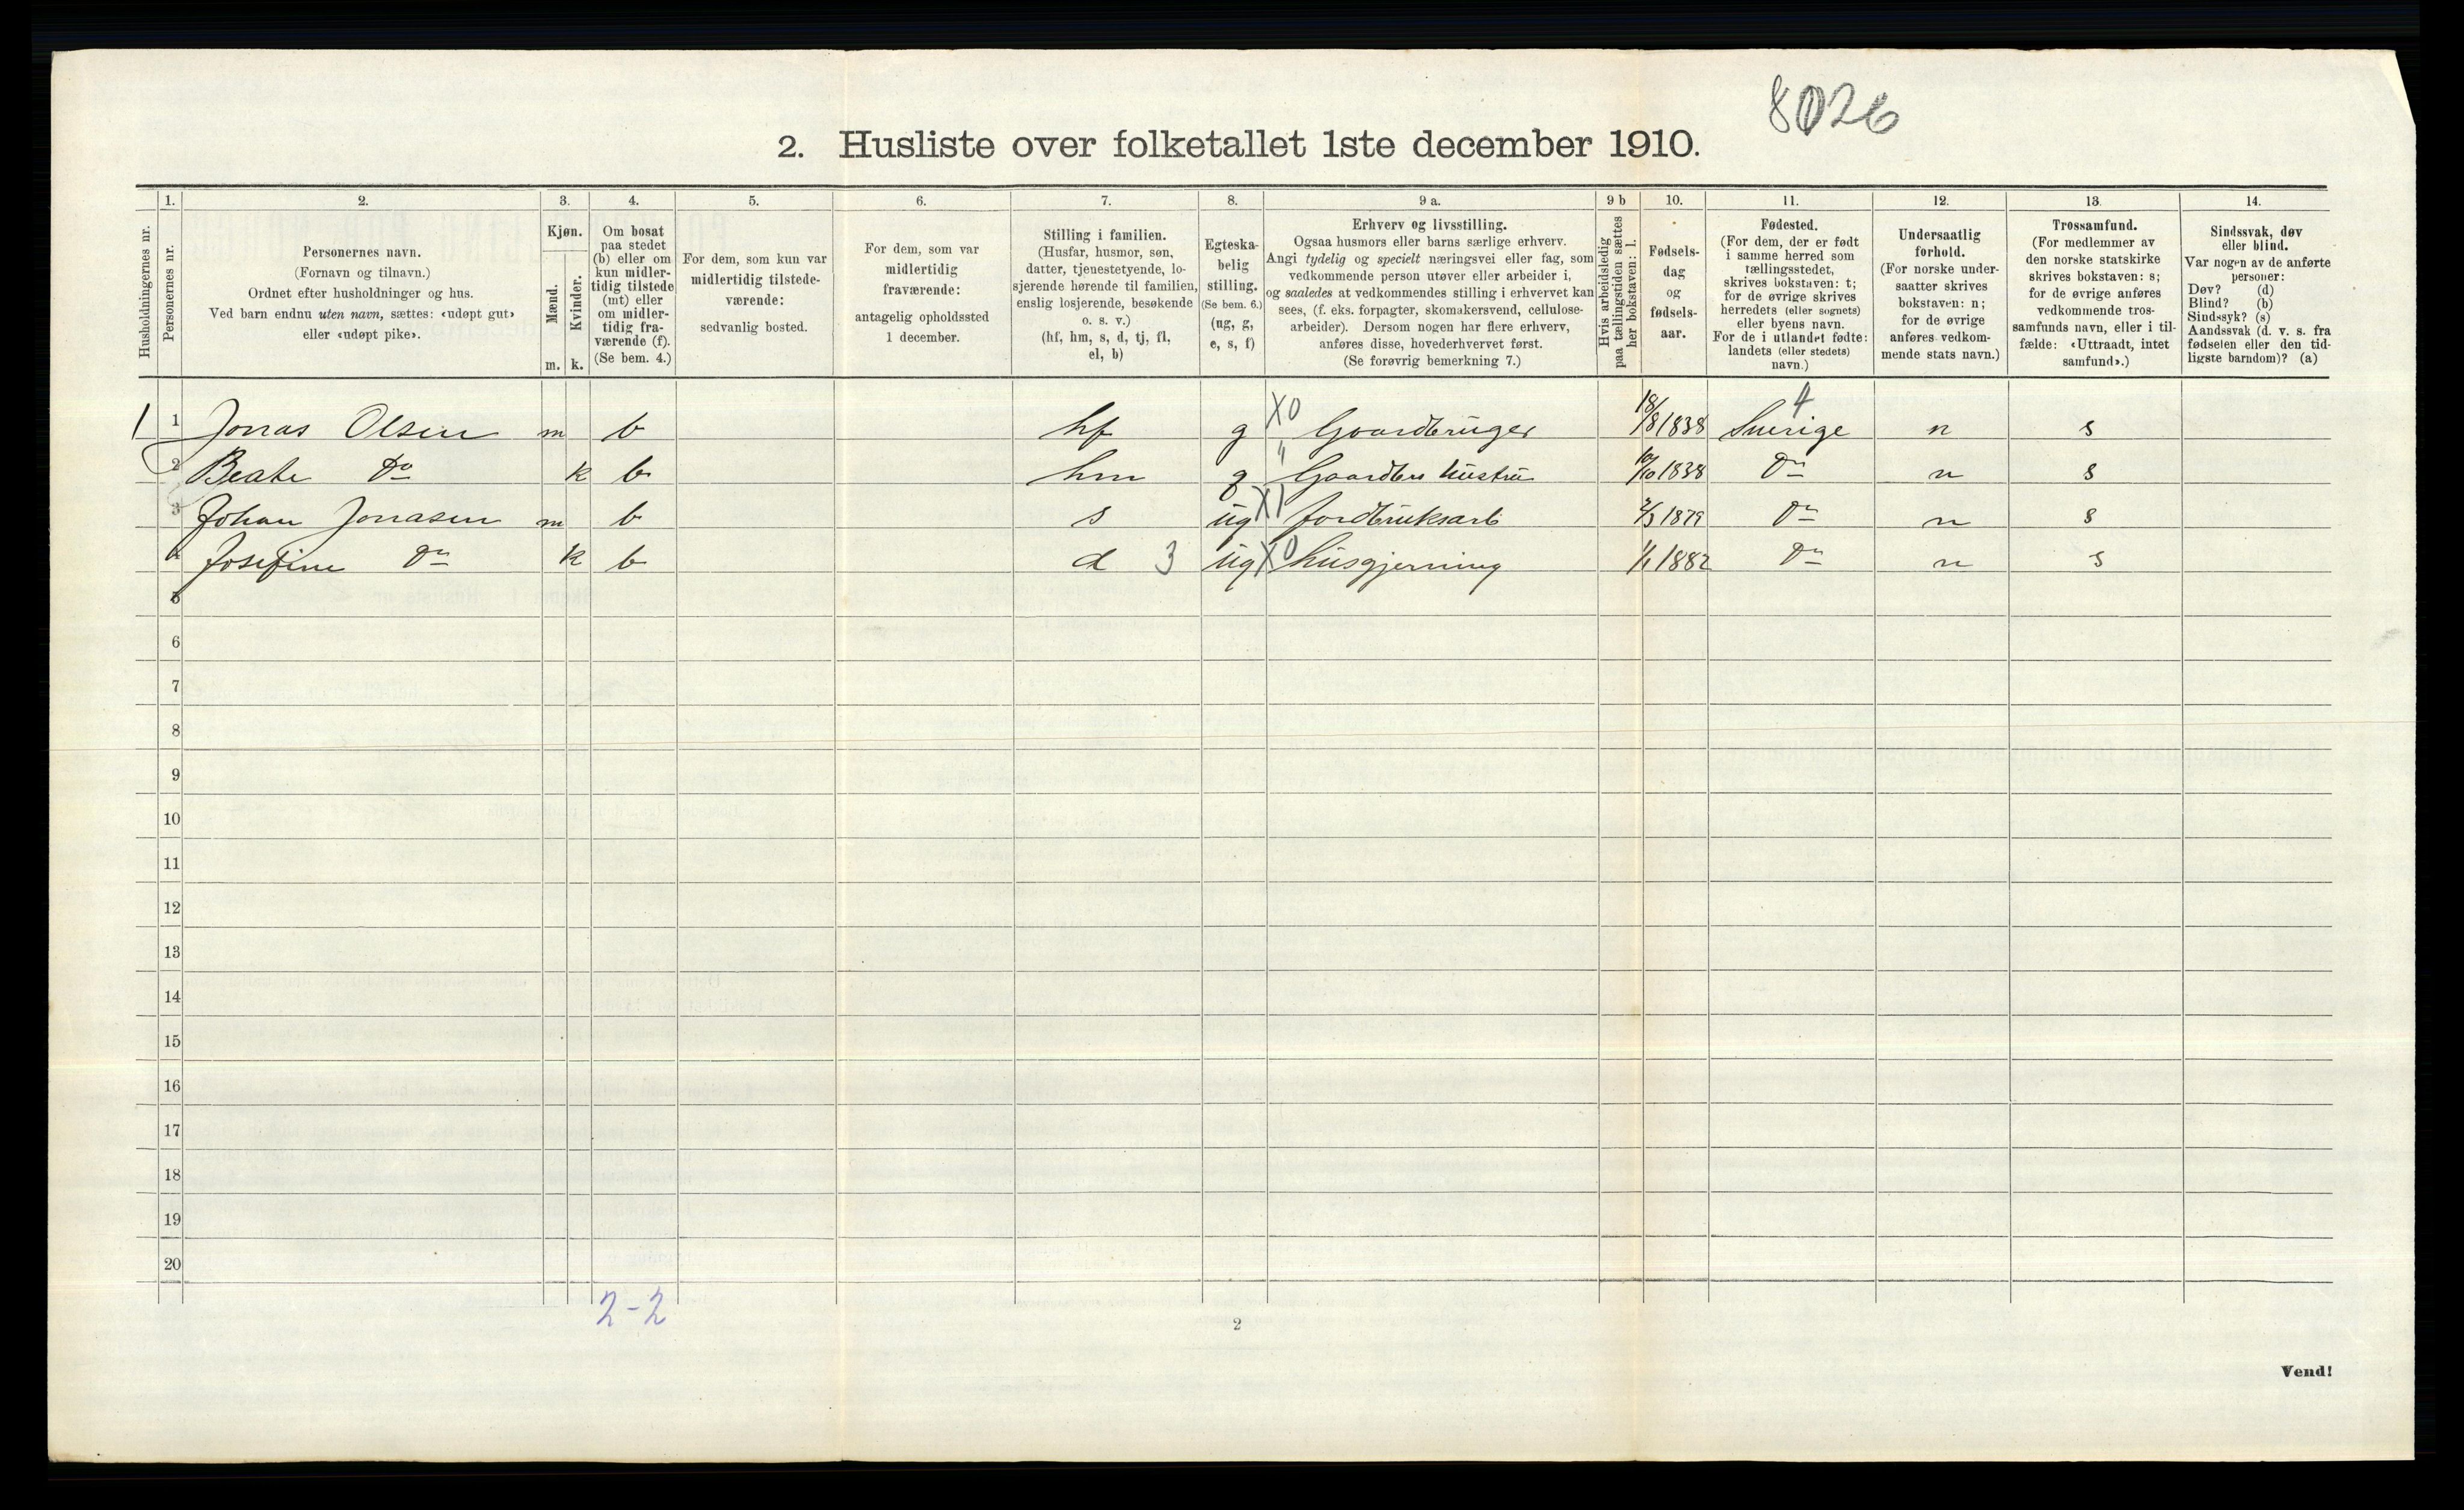 8026
2. Husliste over folketallet 1ste december 1910.
Husholdningernes nr.
1.
Personernes nr.
2.
Personernes navn.
(Fornavn og tilnavn.)
Ordnet efter husholdninger og hus.
Ved barn endnu uten navn, sættes: «udøpt gut»
eller «udøpt pike».
3.
Kjøn.
Mænd.
Kvinder.
m. k.
4.
Om bosat
paa stedet
(b) eller om
kun midler-
tidig tilstede
(mt) eller
om midler-
tidig fra-
værende (f).
(Se bem. 4.)
5.
For dem, som kun var
midlertidig tilstede-
værende:
sedvanlig bosted.
6.
For dem, som var
midlertidig
fraværende:
antagelig opholdssted
1 december.
7.
Stilling i familien.
(Husfar, husmor, søn,
datter, tjenestetyende, lo-
sjerende hørende til familien,
enslig losjerende, besøkende
o. s. v.)
(hf, hm, s, d, tj, fl,
el, b)
8.
Egteska-
belig
stilling.
(Se bem. 6.)
(ug, g,
e, s, f)
9 a.
Erhverv og livsstilling.
Ogsaa husmors eller barns særlige erhverv.
Angi tydelig og specielt næringsvei eller fag, som
vedkommende person utøver eller arbeider i,
og saaledes at vedkommendes stilling i erhvervet kan
sees, (f. eks. forpagter, skomakersvend, cellulose-
arbeider). Dersom nogen har flere erhverv,
anføres disse, hovederhvervet først.
(Se forøvrig bemerkning 7.)
9 b
Hvis arbeidsledig
paa tællingstiden sættes
her bokstaven: l.
10.
Fødsels-
dag
og
fødsels-
aar.
11.
Fødested.
(For dem, der er født
i samme herred som
tællingsstedet,
skrives bokstaven: t;
for de øvrige skrives
herredets (eller sognets)
eller byens navn.
For de i utlandet fødte:
landets (eller stedets)
navn.)
12.
Undersaatlig
forhold.
(For norske under-
saatter skrives
bokstaven: n;
for de øvrige
anføres vedkom-
mende stats navn.)
13.
Trossamfund.
(For medlemmer av
den norske statskirke
skrives bokstaven: s;
for de øvrige anføres
vedkommende tros-
samfunds navn, eller i til-
fælde: «Uttraadt, intet
samfund».)
14.
Sindssvak, døv
eller blind.
Var nogen av de anførte
personer:
Døv? (d)
Blind? (b)
Sindssyk? (s)
Aandssvak (d. v. s. fra
fødselen eller den tid-
ligste barndom)? (a)
4
1 1 Jonas Olsen m b hf g X0 Gaardbruger 18/8 1838 Sverige n s
2 Beate Do k b hm g " Gaardbr hustru 10/10 1838 Do n s
3 Johan Jonasen m b s ug X1 Jordbruksarb 1879 Do n s
4 Josefine Do k b d 3 ug X0 husgjerning 1/1 1882 Do n s
5
6
7
8
9
10
11
12
13
14
15
16
17
18
19
20
2-2
2
Vend!